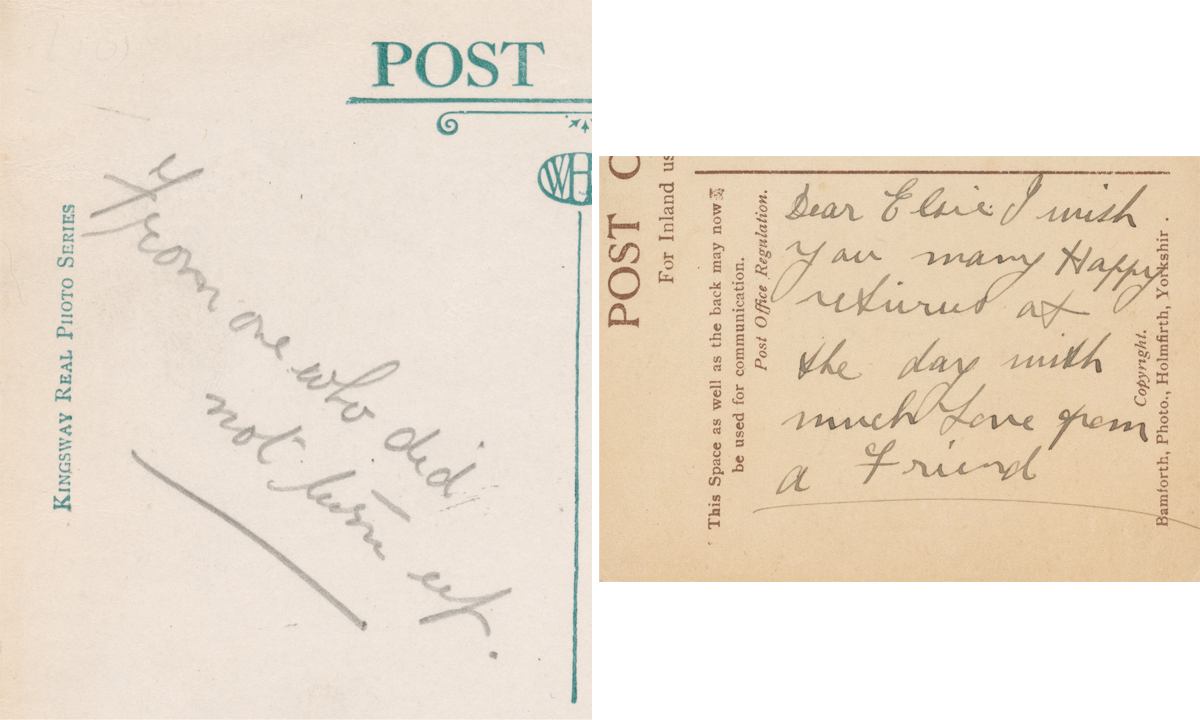 POST
WH
KINGSWAY REAL PHOTO SERIES
From one who did
not turn up.
POST C
For Inland us
This Space as well as the back may now
be used for communication.
Post Office Regulation.
Dear Elsie I wish
you many Happy
returns of
the day with
much Love from
a Friend
Copyright.
Bamforth, Photo., Holmfirth, Yorkshir .